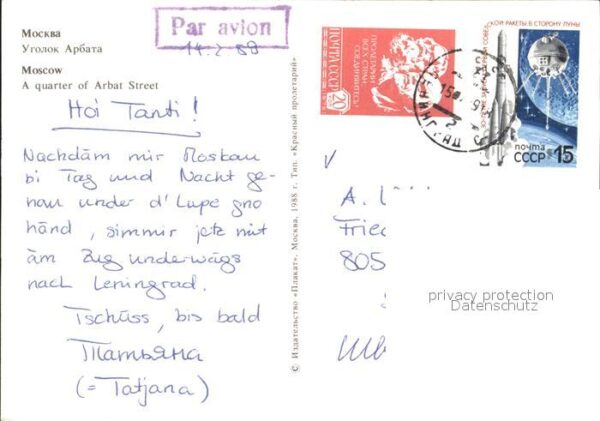 Москва
Уголок Арбата
Moscow
A quarter of Arbat Street
Par avion
14.2.89
Hoi Tanti!
Nachdäm mir Moskau
bi Tag und Nacht ge-
nau under d'Lupe gno
händ, simmir jetz mit
äm Zug underwägs
nach Leningrad.
Tschüss, bis bald
Татьяна
(= Tatjana)
© Издательство «Плакат». Москва, 1988 г. Тип. «Красный пролетарий»
ПОЧТА СССР
20
ПРОЛЕТАРИИ
ВСЕХ СТРАН,
СОЕДИНЯЙТЕСЬ!
КОЙ РАКЕТЫ В СТОРОНУ ЛУНЫ
почта
СССР 15
A.
805
privacy protection
Datenschutz